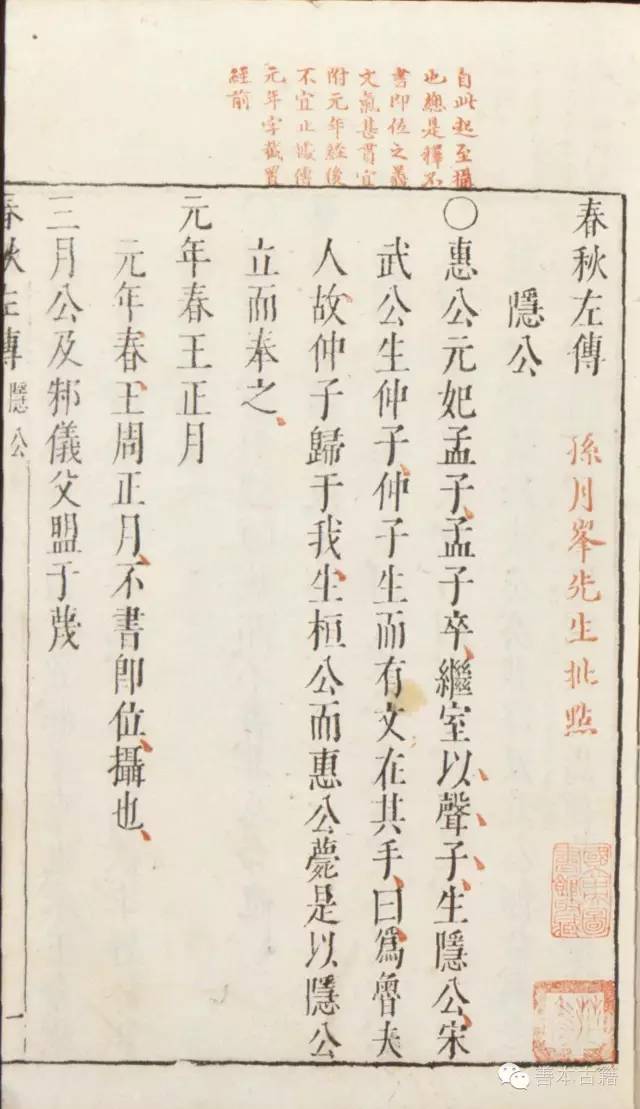 自此起至攝
也總是釋不
書即位之義
文氣甚貫宜
附元年經後
不宜止據傳
元年字截置
經前
春秋左傳
孫月峯先生批點
隱公
○惠公元妃孟子、孟子卒、繼室以聲子、生隱公、宋
武公生仲子、仲子生而有文在其手、曰、爲魯夫
人、故仲子歸于我、生桓公而惠公薨、是以隱公
立而奉之、
元年春王正月
元年春、王周正月、不書卽位、攝也、
三月公及邾儀父盟于蔑
春秋左傳 隱公 一
善本古籍